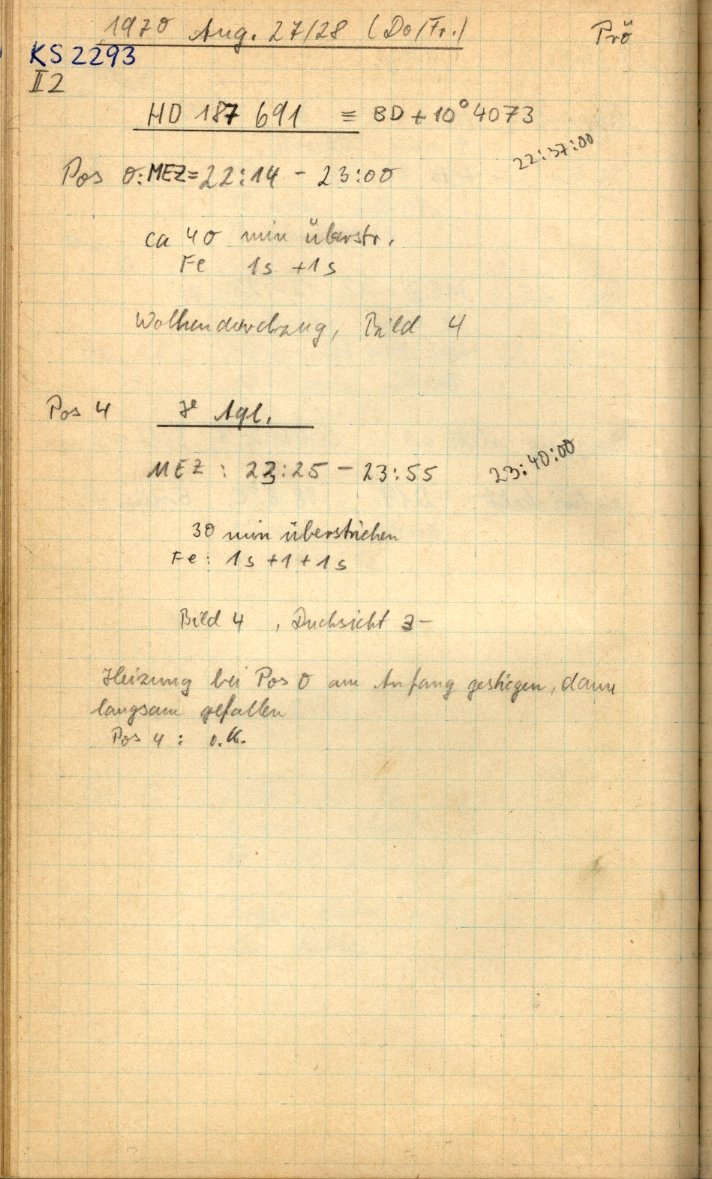 1970 Aug. 27/28 (Do/Fr.) Prö
KS 2293
II 2
HD 187 691 ≡ BD + 10° 4073
22:37:00
Pos 0: MEZ = 22:14 - 23:00
ca 40 min überstr.
Fe 1s + 1s
Wolkendurchzug, Bild 4
Pos 4 Aql.
MEZ : 23:25 - 23:55 23:40:00
30 min überstrichen
Fe : 1s + 1 + 1s
Bild 4 , Duchsicht 3-
Heizung bei Pos 0 am Anfang gestiegen, dann
langsam gefallen
Pos 4 : o.K.